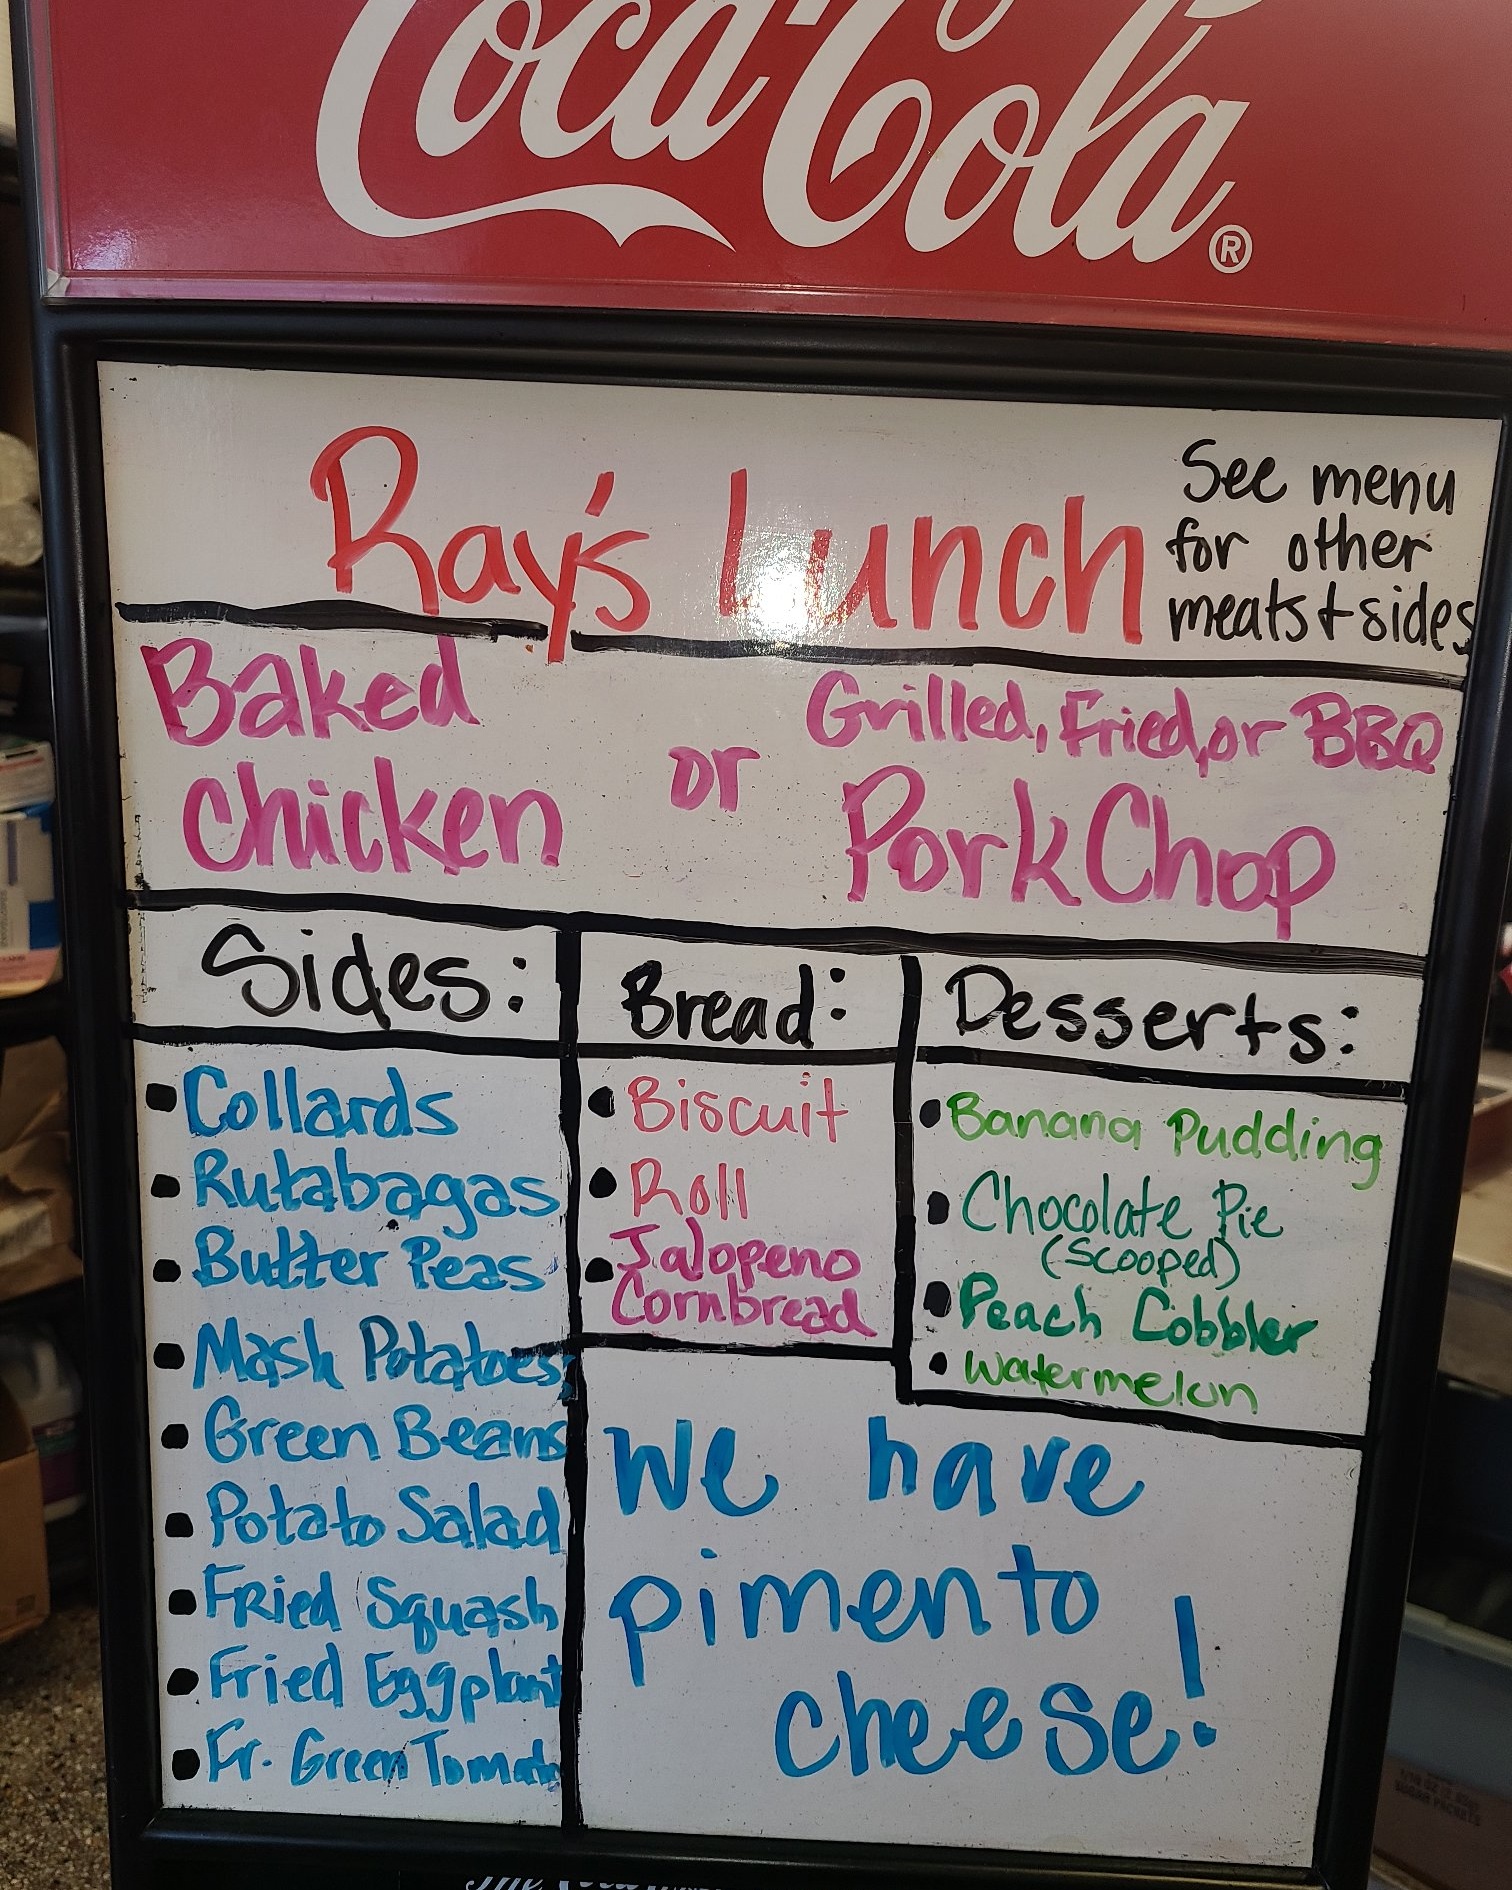 Coca-Cola®
Ray's Lunch
See menu
for other
meats + sides
Baked
Chicken
or
Grilled, Fried, or BBQ
Pork Chop
Sides:
Collards
Rutabagas
Butter Peas
Mash Potatoes
Green Beans
Potato Salad
Fried Squash
Fried Eggplant
Fr. Green Tomato
Bread:
Biscuit
Roll
Jalopeno
Cornbread
Desserts:
Banana Pudding
Chocolate Pie
(Scooped)
Peach Cobbler
Watermelon
We have
pimento
cheese!